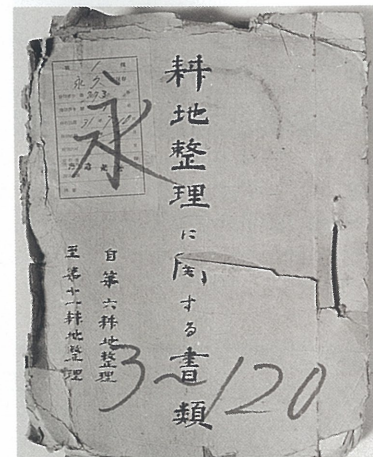 永久
永
耕地整理に関する書類
自第六耕地整理
至第十一耕地整理
3~120